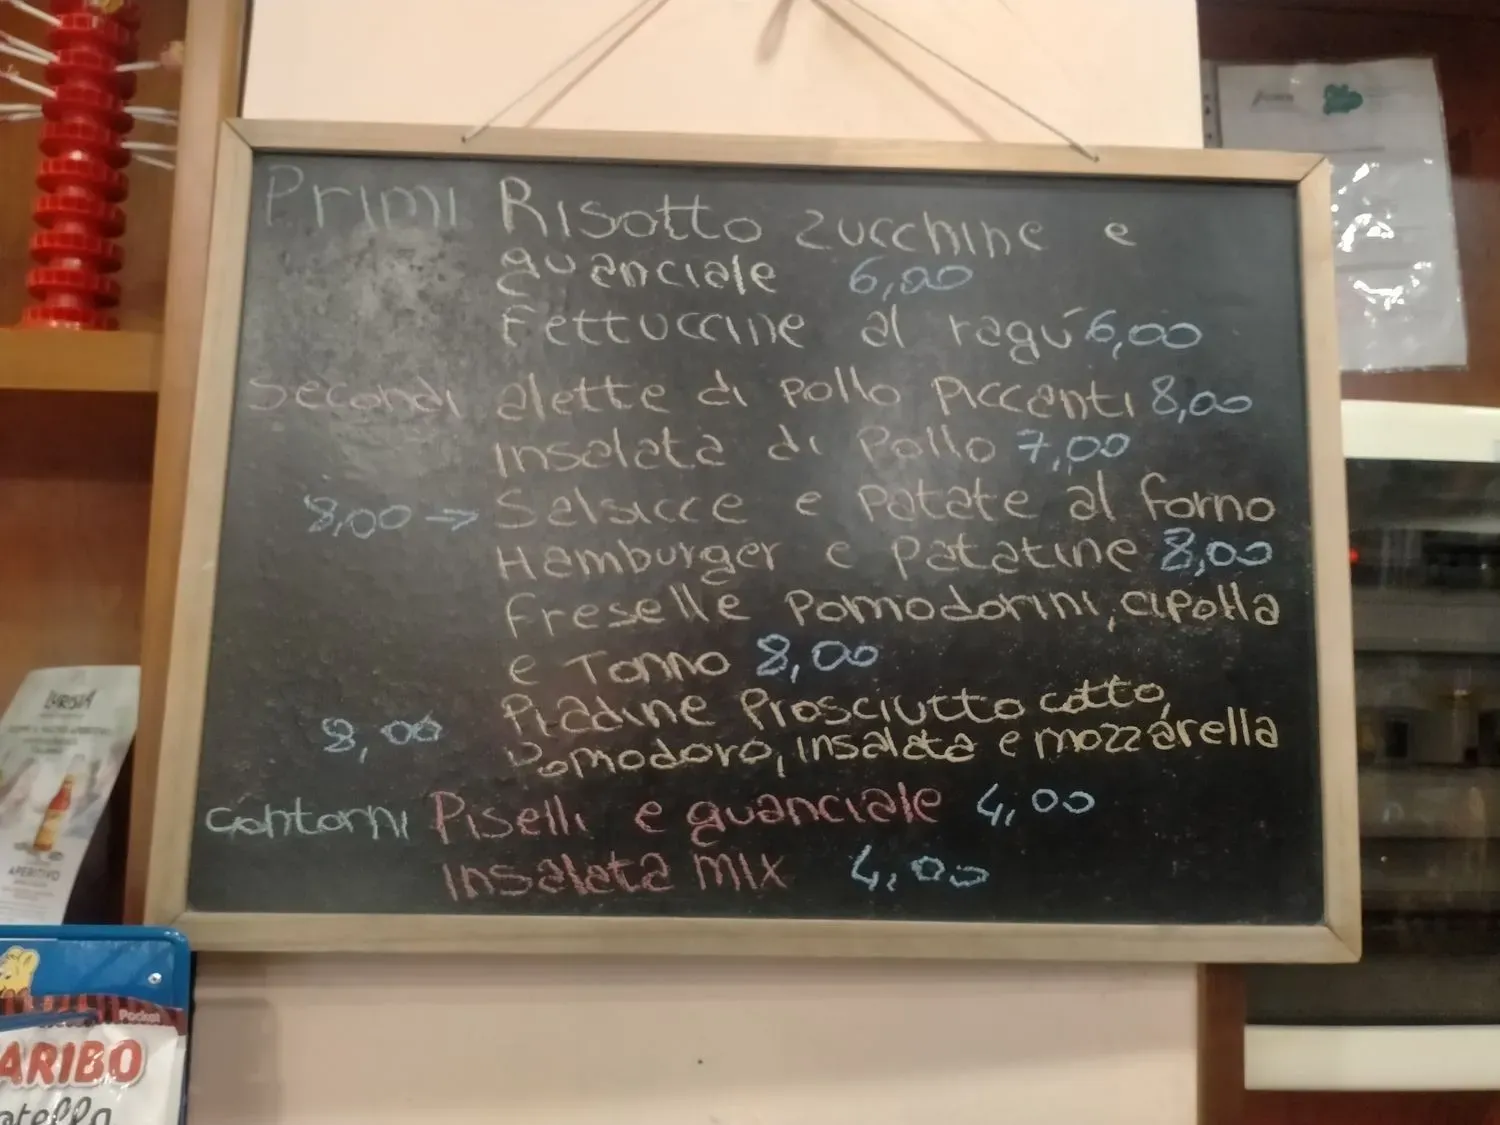 Primi Risotto zucchine e
guanciale 6,00
Fettuccine al ragú 6,00
Secondi alette di pollo piccanti 8,00
insalata di pollo 7,00
8,00 → Salsicce e patate al forno
Hamburger e patatine 8,00
freselle pomodorini, cipolla
e Tonno 8,00
Piadine Prosciutto cotto,
8,00 Pomodoro, insalata e mozzarella
contorni Piselli e guanciale 4,00
insalata mix 4,00
APERITIVO
Pocket
ARIBO